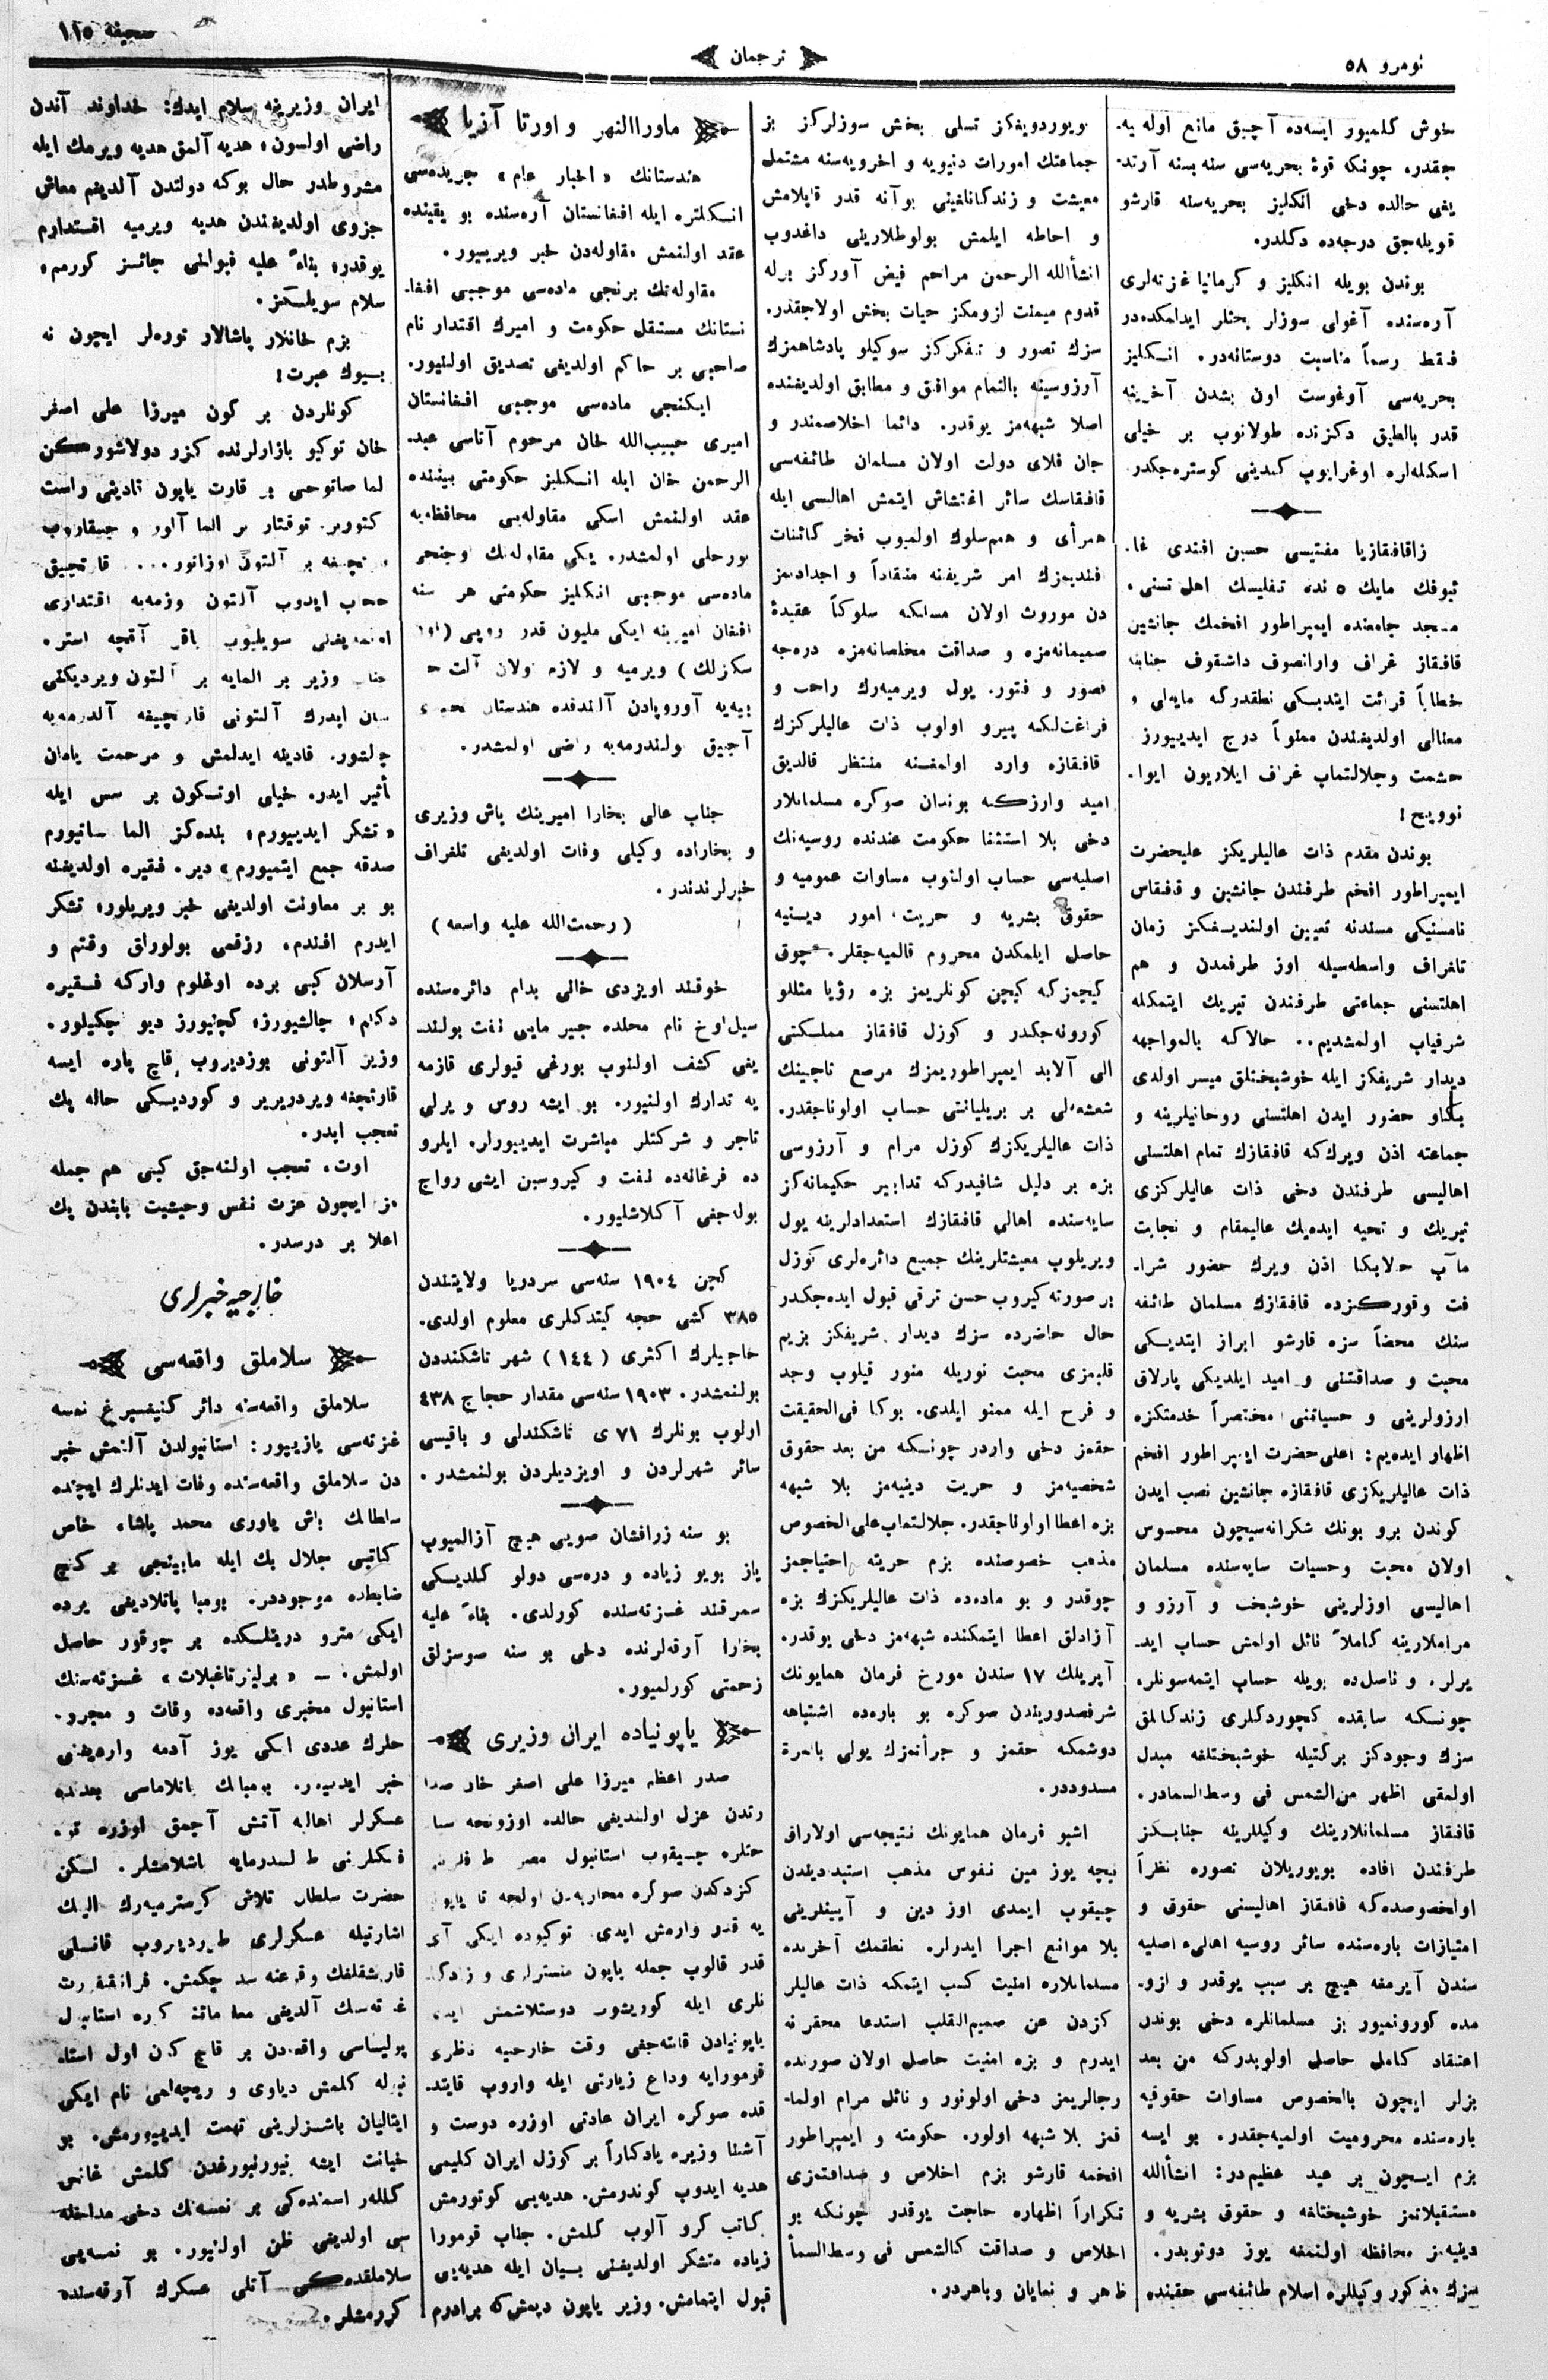 نومرو ٥٨
ترجمان
صحيفه ١١٥
خوش كلميور ايسه‌ده آچيق مانع اوله يه-
جقدر، چونكه قوۀ بحريه‌سی سنه بسنه آرتد-
يغی حالده دخی انكليز بحريه‌سنه قارشو
قويله‌جق درجه‌ده دكلدر.
بوندن بويله انكليز و كرمانيا غزته‌لری
آره‌سنده آغولی سوزلر بحثلر ايدلمكده‌در
فقط رسماً مناسبت دوستانه‌در. انكليز
بحريه‌سی آوغوست اون بشدن آخرينه
قدر بالطيق دكزنده طولانوب بر خيلی
اسكله‌لره اوغرايوب كندينی كوستره‌جكدر
زاقافقازيا مفتيسی حسين افندی غا-
ئبوفك مايك ٥ نده تفليسك اهل تسنی،
مسجد جامعنده ايمپراطور افخمك جانشين
قافقاز غراف وارانصوف داشقوف جنابنه
خطاباً قرائت ايتديكی نطقدركه مايه‌لی و
معنالی اولديغندن ممنوناً درج ايدييورز
حشمت وجلالتماب غراف ايلاريون ايوا-
نوويچ!
بوندن مقدم ذات عاليلريكز عليحضرت
ايمپراطور افخم طرفندن جانشين و قافقاس
نامستنيكی مسندنه تعيين اولنديغكز زمان
تلغراف واسطه‌سيله اوز طرفمدن و هم
اهلتسنی جماعتی طرفندن تبريك ايتمكله
شرفياب اولمشديم.. حالاكه بالمواجهه
ديدار شريفكز ايله خوشبختلق ميسر اولدی
بنكاو حضور ايدن اهلتسنی روحانيلرينه و
جماعته اذن ويرك‌كه قافقازك تمام اهلتسنی
اهاليسی طرفندن دخی ذات عاليلركزی
تبريك و تحيه ايده‌يك عاليمقام و نجابت
مآب حالابكا اذن ويرك حضور شرا-
فت وقوركزده قافقازك مسلمان طائفه
سنك محضاً سزه قارشو ابراز ايتديكی
محبت و صداقتنی و اميد ايلديكی پارلاق
ارزولرينی و حسياتنی مختصراً خدمتكزه
اظهار ايده‌يم: اعلی حضرت ايمپراطور افخم
ذات عاليلريكزی قافقازه جانشين نصب ايدن
كوندن برو بونك شكرانه‌سيچون محسوس
اولان محبت وحسيات سايه‌سنده مسلمان
اهاليسی اوزلرينی خوشبخت و آرزو و
مراملارينه كاملاً نائل اولمش حساب ايد-
يرلر. و ناصل‌ده بويله حساب ايتمه‌سونلر،
چونكه سابقده كچوردكلری زندكانلق
سزك وجودكز بركتيله خوشبختلغه مبدل
اولمقی اظهر من‌الشمس فی وسط‌السمادر.
قافقاز مسلمانلارينك وكيللرينه جنابكز
طرفندن افاده بويوريلان تصوره نظراً
اولخصوصده‌كه قافقاز اهاليسنی حقوق و
امتيازات باره‌سنده سائر روسيه اهالیء اصليه
سندن آيرمغه هيچ بر سبب يوقدر و ازو-
مده كورونميور بز مسلمانلره دخی بوندن
اعتقاد كامل حاصل اولويدركه من بعد
بزلر ايچون بالخصوص مساوات حقوقيه
باره‌سنده محروميت اولميه‌جقدر. بو ايسه
بزم ايچون بر عيد عظيم‌در: انشأالله
مستقبلاتمز خوشبختلغه و حقوق بشريه و
دينيه‌مز محافظه اولنمغه يوز دوتوبدر.
سزك مذكور وكيللره اسلام طائفه‌سی حقينده
بويوردويغكز تسلی بخش سوزلركز بز
جماعتك امورات دنيويه و اخرويه‌سنه مشتمل
معيشت و زندكانلغينی بوآنه قدر قاپلامش
و احاطه ايلمش بولوطلارينی داغدوب
انشأالله الرحمن مراحم فيض آورکز برله
قدوم ميمنت ازومكز حيات بخش اولاجقدر.
سزك تصور و تفكركز سوكيلو پادشاهمزك
آرزوسينه بالتمام موافق و مطابق اولديغنده
اصلا شبهه‌مز يوقدر. دائما اخلاصمندر و
جان فدای دولت اولان مسلمان طائفه‌سی
قافقاسك سائر اغتشاش ايتمش اهاليسی ايله
همرأی و هم‌سلوك اولميوب فخر كائنات
افنديمزك امر شريفنه منقاداً و اجداديمز
دن موروث اولان مسلكه سلوكاً عقيدۀ
صميمانه‌مزه و صداقت مخلصانه‌مزه دره‌جه
قصور و فتور. يول ويرميه‌رك راحت و
فراغتلكه پيرو اولوب ذات عاليلركزك
قافقازه وارد اولمغسنه منتظر قالديق
اميد واركه بوندان صوكره مسلمانلار
دخی بلا استثنا حكومت عندنده روسيه‌نك
اصليه‌سی حساب اولنوب مساوات عموميه و
حقوق بشريه و حريت امور دينيه
حاصل ايلمكدن محروم قالميه‌جقلر. چوق
كيچمزكه كيچن كونلريمز بزه رؤيا مثللو
كورونه‌جكدر و كوزل قافقاز مملكتی
الی آلابد ايمپراطوريمزك مرصع تاجينك
شعشعه‌لی بر بريليانتی حساب اولوناجقدر.
ذات عاليلريكزك كوزل مرام و آرزوسی
بزه بر دليل شافيدركه تدابير حكيمانه‌كز
سايه‌سنده اهالی قافقازك استعدادلرينه يول
ويريلوب معيشتلرينك جميع دائره‌لری كوزل
بر صورته كيروب حسن ترقی قبول ايده‌جكدر
حال حاضرده سزك ديدار شريفكز بزيم
قلبمزی محبت نوريله منور قيلوب وجد
و فرح ايله ممنو ايلدی. بوكا فی‌الحقيقت
حقمز دخی واردر چونكه من بعد حقوق
شخصيه‌مز و حريت دينيه‌مز بلا شبهه
بزه اعطا اولوناجقدر. جلالتماب علی الخصوص
مذهب خصوصنده بزم حريته احتياجمز
چوقدر و بو ماده‌ده ذات عاليلريكزك بزه
آزادلق اعطا ايتمكنده شبهه‌مز دخی يوقدر.
آپريلك ١٧ سندن مورخ فرمان همايونك
شرفصدوريندن صوكره بو باره‌ده اشتباهه
دوشمكه حقمز و جرأتمزك يولی بالمرة
مسدوددر.
اشبو فرمان همايونك نتيجه‌سی اولاراق
نيچه يوز مين نفوس مذهب استبدديتدن
چيقوب ايمدی اوز دين و آيينلرينی
بلا موانع اجرا ايدرلر. نطقمك آخرنده
مسلمانلاره امنيت كسب ايتمكه ذات عاليلر
كزدن عن صميم‌القلب استدعا محقرنه
ايدرم و بزه امنيت حاصل اولان صورتده
رجالريمز دخی اولونور و نائل مرام اولما-
قمز بلا شبهه اولور. حكومته و ايمپراطور
افخمه قارشو بزم اخلاص و صداقتمزی
تكراراً اظهاره حاجت يوقدر چونكه بو
اخلاص و صداقت كالشمس فی وسط‌السمأ
ظاهر و نمايان وباهردر.
ماوراالنهر و اورتا آزيا
هندستانك «اخبار عام» جريده‌سی
انكلتره ايله افغانستان آره‌سنده بو يقينده
عقد اولنمش مقاوله‌دن خبر ويرييور.
مقاوله‌نك برنجی ماده‌سی موجبی افغا-
نستانك مستقل حكومت و اميرك اقتدار نام
صاحبی بر حاكم اولديغی تصديق اولنيور.
ايكنجی ماده‌سی موجبی افغانستان
اميری حبيب‌الله خان مرحوم آتاسی عبد-
الرحمن خان ايله انكليز حكومتی بيننده
عقد اولنمش اسكی مقاوله‌يی محافظه‌يه
بورجلی اولمشدر. يكی مقاوله‌نك اوچنجی
ماده‌سی موجبی انكليز حكومتی هر سنه
افغان اميرينه ايكی مليون قدر روپی (اون
سكزلك) ويرميه و لازم اولان آلت
يه‌يه آوروپادن آلندقده هندستان
آچيق بولندرمه‌يه راضی اولمشدر.
جناب عالی بخارا اميرينك باش وزيری
و بخاراده وكيلی وفات اولديغی تلغراف
خبرلرندندر.
(رحمت‌الله عليه واسعه)
خوقند اويزدی خالی بدام دائره‌سنده
سيل‌اوخ نام محلده جبير مايی نفت بولند-
يغی كشف اولنوب بورغی قيولری قازمه
يه تدارك اولنيور. بو ايشه روس و يرلی
تاجر و شركتلر مباشرت ايدييورلر. ايلرو
ده فرغانه‌ده نفت و كيروسين ايشی رواج
بوله‌جغی آكلاشليور.
كچن ١٩٠٤ سنه‌سی سردريا ولايتندن
٣٨٥ كشی حجه كيتدكلری معلوم اولدی.
حاجيلرك اكثری (١٤٤) شهر تاشكنددن
بولنمشدر. ١٩٠٣ سنه‌سی مقدار حجاج ٤٣٨
اولوب بونلرك ٧١ ی تاشكندلی و باقيسی
سائر شهرلردن و اويزدلردن بولنمشدر.
بو سنه زرافشان صويی هيچ آزالميوب
ياز بويو زياده و دره‌سی دولو كلديكی
سمرقند غزته‌سنده كورلدی. بناءً عليه
بخارا آرقه‌لرنده دخی بو سنه صوسزلق
زحمتی كورلميور.
ياپونياده ايران وزيری
صدر اعظم ميرزا علی اصغر خان صدا
رتدن عزل اولنديغی حالده اوزونجه سيا
حتلره چيقوب استانبول مصر طرفلرينی
كزدكدن صوكره محاربه‌دن اولجه تا ياپون
يه قدر وارمش ايدی. توكيوده ايكی آی
قدر قالوب جمله ياپون منسترلری و زادكا-
نلری ايله كوريشوب دوستلاشمش ايدی
ياپونيادن قايته‌جغی وقت خارجيه ناظری
قومورايه وداع زيارتی ايله واروب قايتد-
قده صوكره ايران عادتی اوزره دوست و
آشنا وزيره يادكاراً بر كوزل ايران كليمی
هديه ايدوب كوندرمش. هديه‌يی كوتورمش
كاتب كرو آلوب كلمش. جناب قومورا
زياده متشكر اولديغنی بيان ايله هديه‌يی
قبول ايتمامش. وزير ياپون ديمش‌كه برادرم
ايران وزيرينه سلام ايدك: خداوند آندن
راضی اولسون، هديه آلمق هديه ويرمك ايله
مشروطدر حال بوكه دولتدن آلديغم معاش
جزوی اولديغندن هديه ويرميه اقتدارم
يوقدر، بناءً عليه قبولنی جائز كورمم،
سلام سويلكز.
بزم خانلار پاشالار توره‌لر ايچون نه
بيوك عبرت!
كونلردن بر كون ميرزا علی اصغر
خان توكيو بازارلرنده كزر دولاشوركن
الما صاتوجی بر قارت ياپون قادينی راست
كتورر. توقتار بر الما آلور و چيقاروب
قارتچيغه بر آلتون اوزانور... قارتچيق
حساب ايدوب آلتون وزمه‌يه اقتداری
اولمديغنی سويليوب باقر آقچه استر.
جناب وزير بر المايه بر آلتون ويرديكنی
بيان ايدرك آلتونی قارتچيغه آلدرمه‌يه
چالشور. قادينه ايدلمش و مرحمت يامان
تأثير ايدر. خيلی اوتكون بر سس ايله
«تشكر ايدييورم، بنده‌كز الما ساتيورم
صدقه جمع ايتميورم» دير. فقيره اولديغنه
بو بر معاونت اولديغی خبر ويريلور، تشكر
ايدرم افندم، رزقمی بولوراق وقتم و
آرسلان كبی برده اوغلوم واركه فقيره
دكلم، چالشيورز، كچنيورز ديو چكيلور.
وزير آلتونی بوزديروب قاچ پاره ايسه
قارتچغه ويردرير و كورديكی حاله پك
تعجب ايدر.
اوت، تعجب اولنه‌جق كبی هم جمله
مز ايچون عزت نفس وحيثيت بابندن پك
اعلا بر درسدر.
خارجيه خبرلری
سلاملق واقعه‌سی
سلاملق واقعه‌سنه دائر كنيغسبرغ نمسه
غزته‌سی يازييور: استانبولدن آلنمش خبر
دن سلاملق واقعه‌سنده وفات ايدنلرك ايچنده
سلطانك باش ياوری محمد پاشا، خاص
كاتبی جلال بك ايله مابينجی بر كنج
ضابطده موجوددر. بومبا پاتلاديغی يرده
ايكی مترو درينلكده بر چوقور حاصل
اولمش. — «برلينر تاغبلات» غزته‌سنك
استانبول مخبری واقعه‌ده وفات و مجرو-
حلرك عددی ايكی يوز آدمه وارديغنی
خبر ايدييور. بومبانك پاتلاماسی بعدنده
عسكرلر اهاليه آتش آچمق اوزره
تفكلرينی طولدرمايه باشلامشلر. لكن
حضرت سلطان تلاش كوسترميه‌رك الينك
اشارتيله عسكرلری طورديروب قانلی
قارشقلقك وقوعنه سد چكمش. فرانقفورت
غزته‌سنك آلديغی معلوماتنه كوره استانبول
پوليساسی واقعه‌دن بر قاچ كون اول استا-
نبوله كلمش دياوی و ريچه‌اهی نام ايكی
ايتاليان باشسزلرينی تهمت ايدييورمش. بو
خيانت ايشه نيورنبورغدن كلمش غانی
كللر اسمنده‌كی بر نمسه‌نك دخی مداخله
سی اولديغی ظن اولنيور. بو نمسه‌يی
سلاملقده‌كی آتلی عسكرك آرقه‌سنده
كورمشلر.